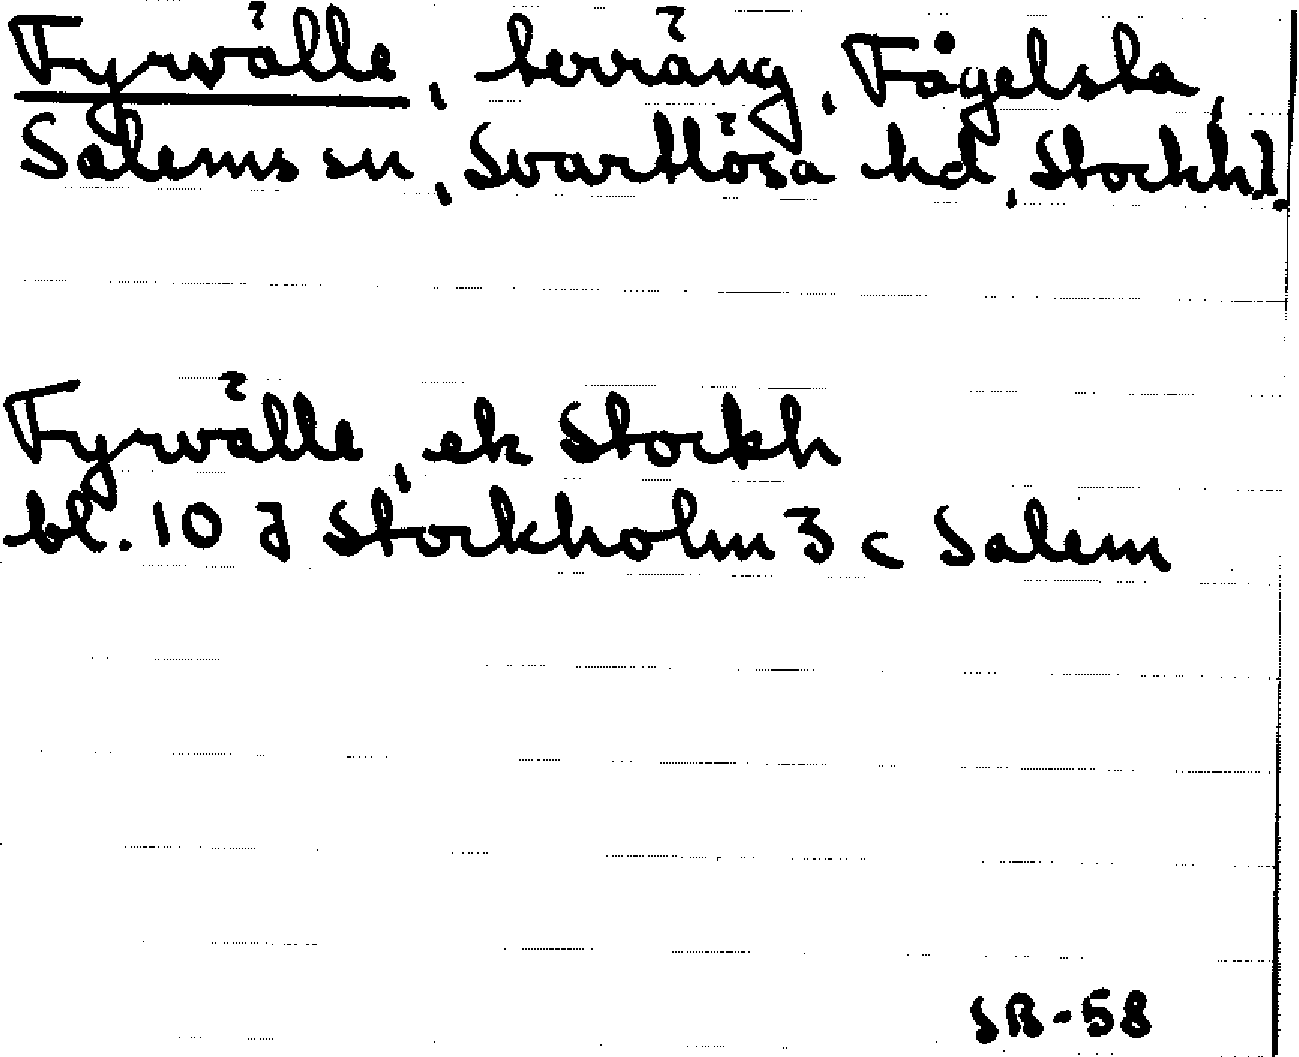 Fyrvälle, terräng, Fågelsta,
Salems sn, Svartlösa hd, Stockh.
Fyrvälle, ek Stockh
bl. 10 J Stockholm 3 c Salem
SR-58